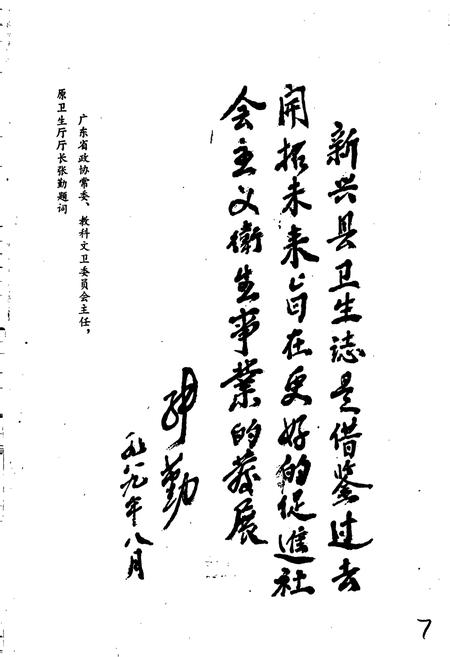 新兴县卫生誌是借鉴过去
開拓未来旨在更好的促進社
会主义衛生事業的發展
张勤
一九八九年八月
广东省政协常委、教科文卫委员会主任，
原卫生厅厅长张勤题词
7